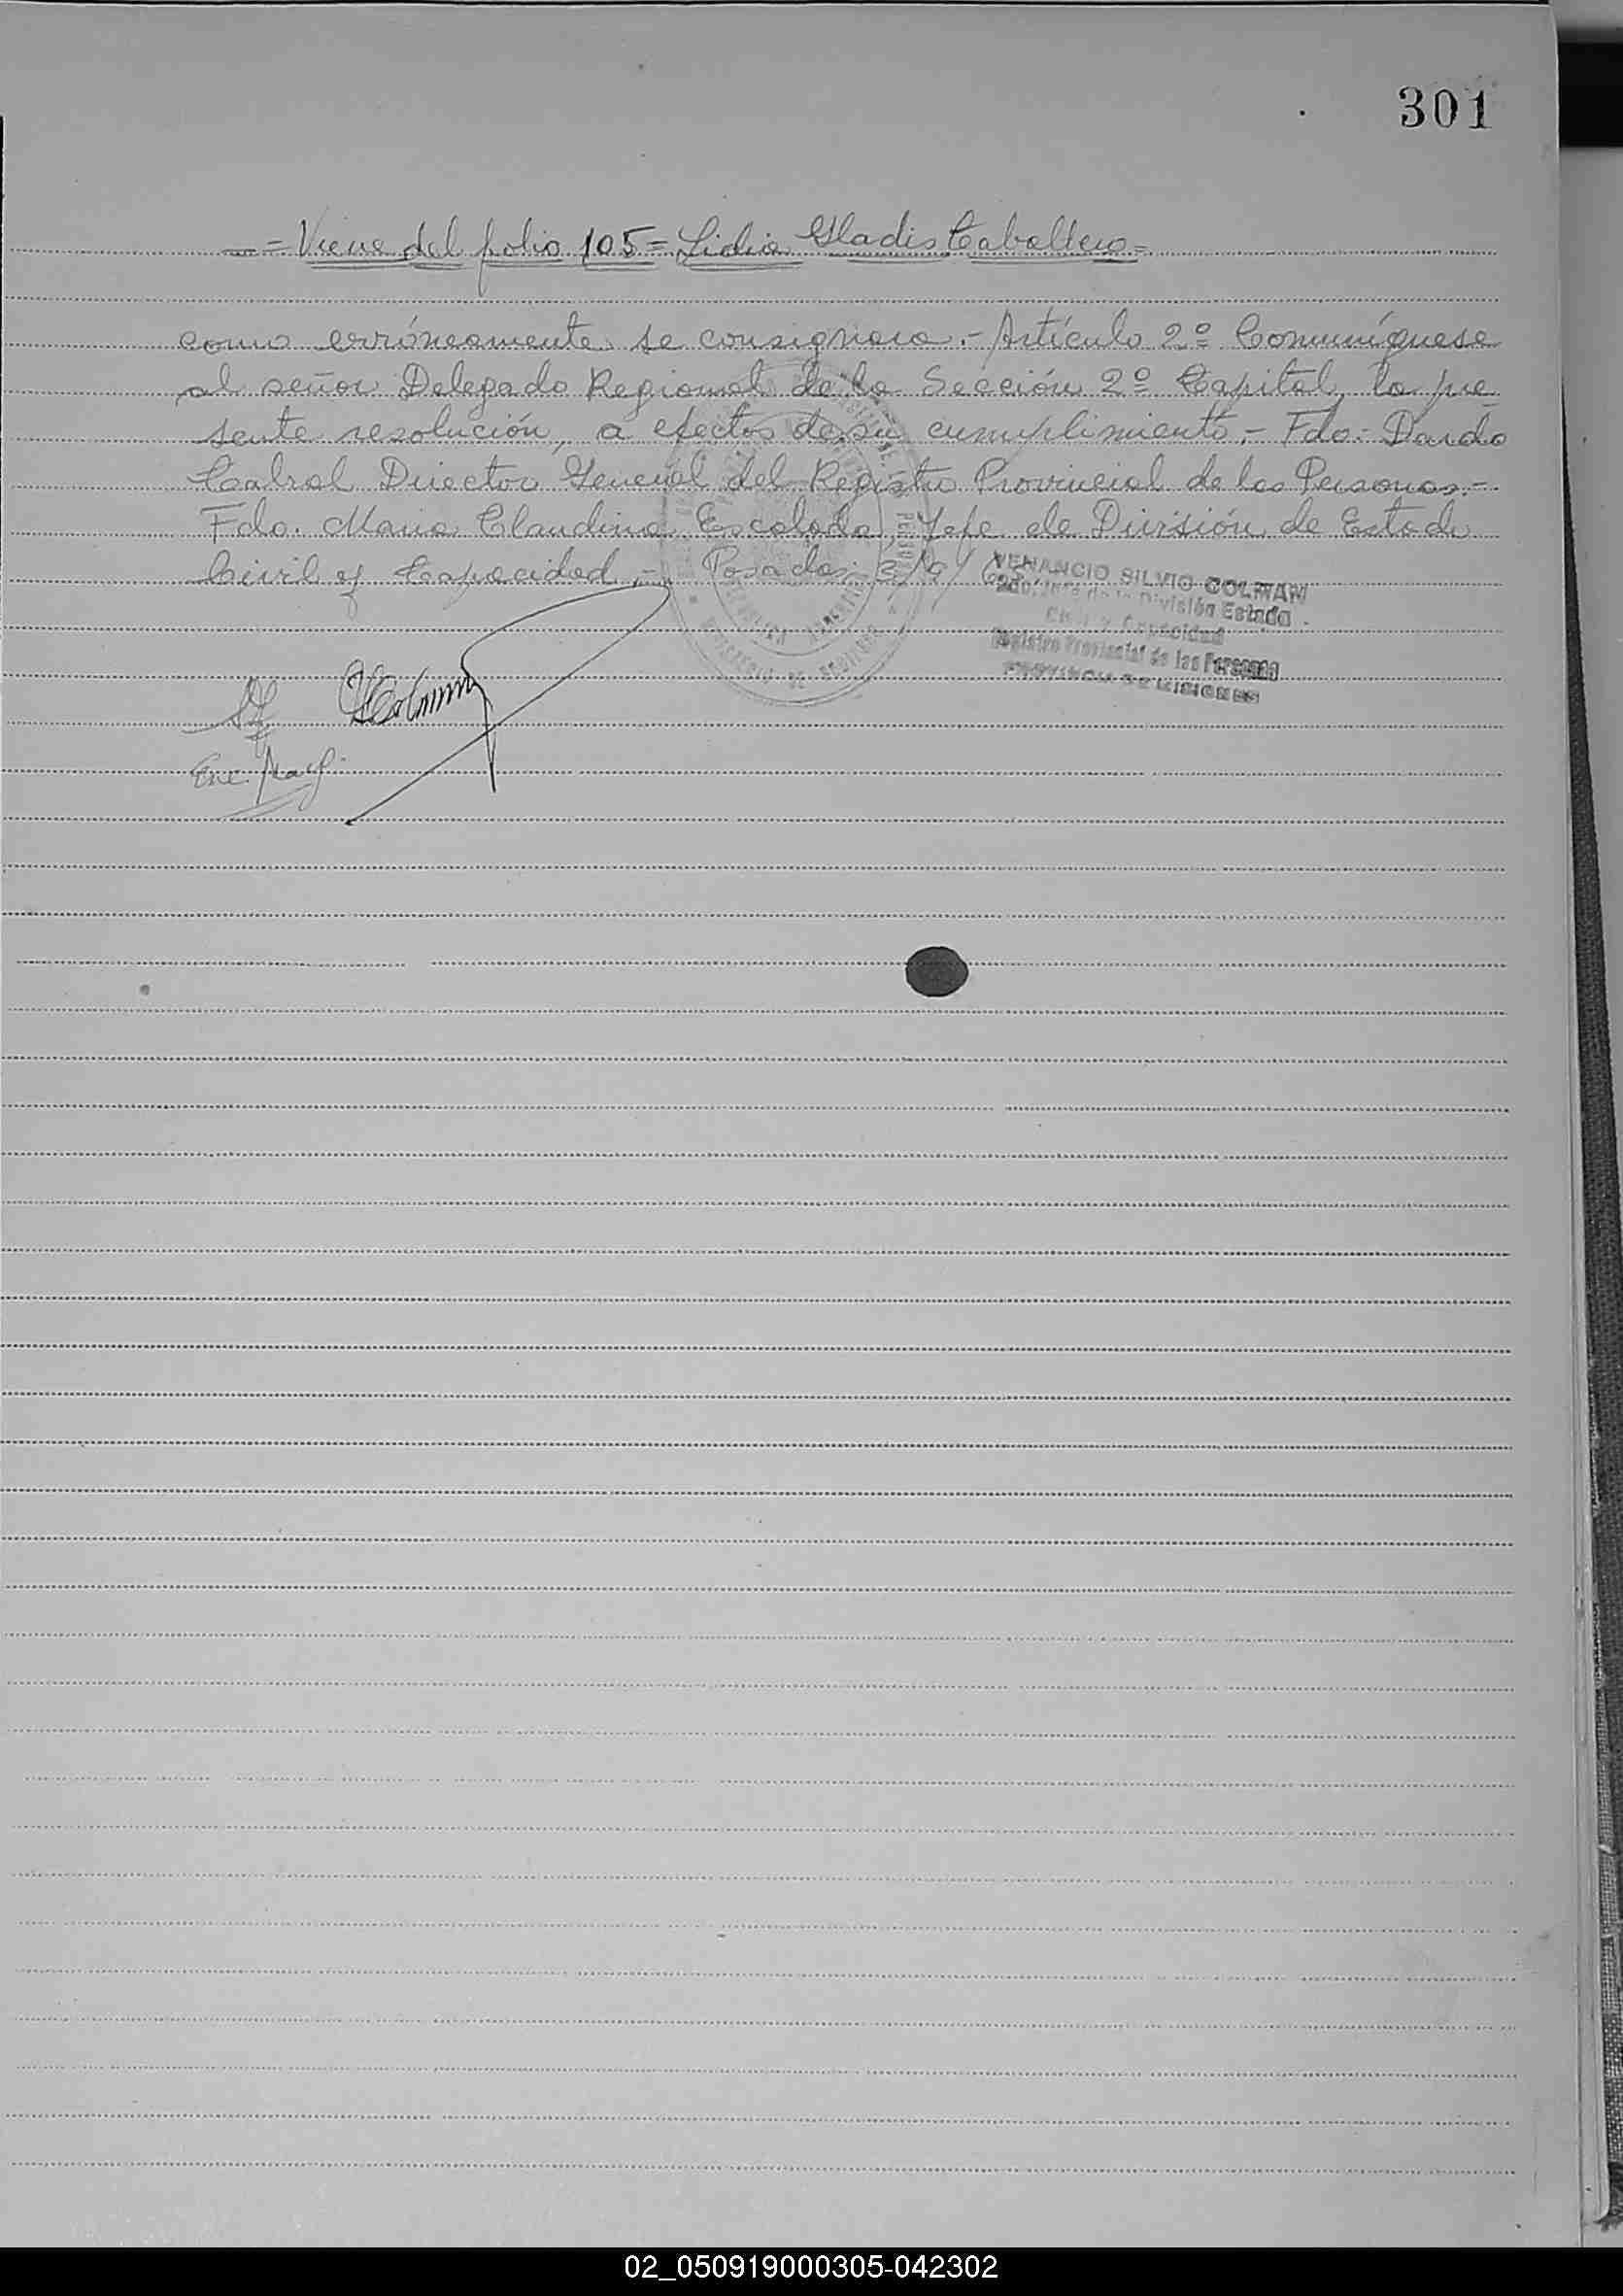 301
= Viene del folio 105 = Lidia Gladis Caballero =
como erróneamente se consignara.- Artículo 2º Comuníquese
al señor Delegado Regional de la Sección 2º Capital, la pre-
sente resolución, a efectos de su cumplimiento.- Fdo. Dardo
Cabral Director General del Registro Provincial de las Personas.-
Fdo. Maria Claudina Escalada, Jefe de División de Estado
Civil y Capacidad.- Posadas,
VENANCIO SILVIO COLMAN
de la División Estado
Civil y Capacidad
Registro Provincial de las Personas
PROVINCIA DE MISIONES
Enc.
02_050919000305-042302